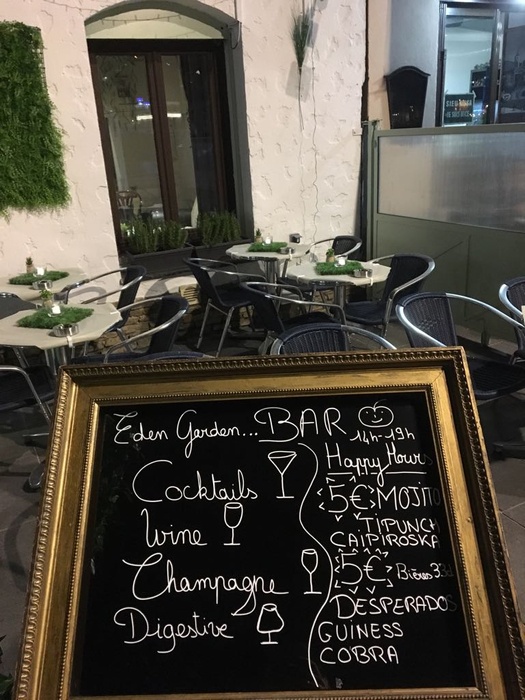 Eden Garden... BAR
Cocktails
Wine
Champagne
Digestive
14h-19h
Happy Hours
5€ MOJITO
TIPUNCH
CAIPIROSKA
5€ Bières 33cl
DESPERADOS
GUINESS
COBRA